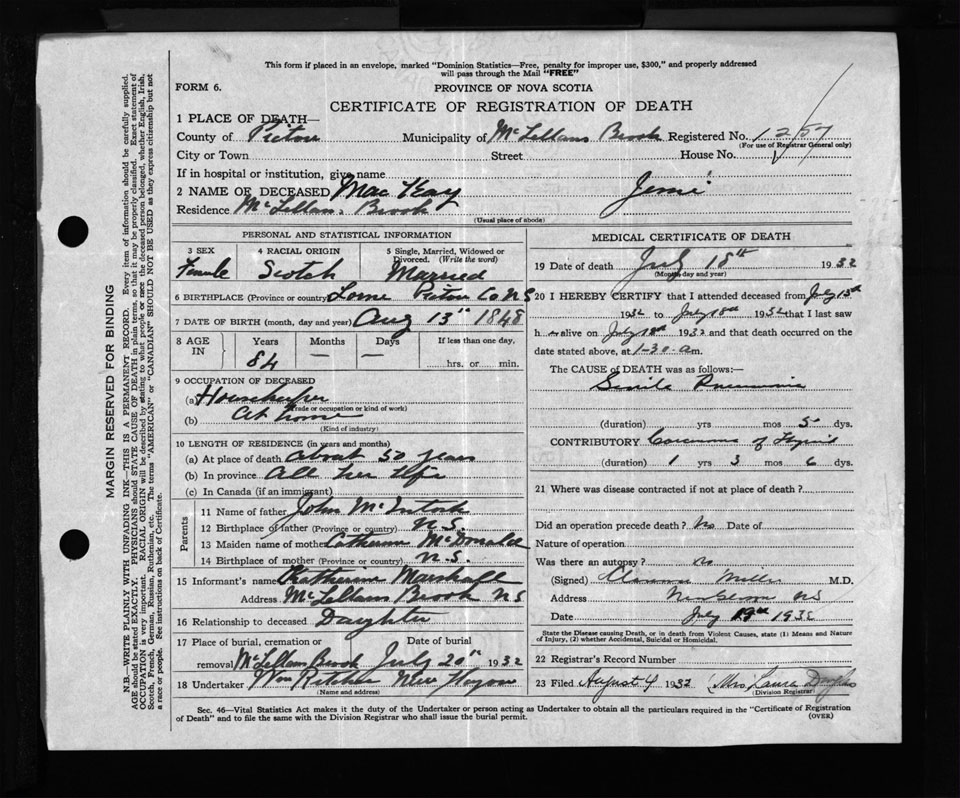 This form if placed in an envelope, marked "Dominion Statistics—Free, penalty for improper use, $300," and properly addressed
will pass through the Mail "FREE"
FORM 6.
PROVINCE OF NOVA SCOTIA
CERTIFICATE OF REGISTRATION OF DEATH
1 PLACE OF DEATH—
County of Pictou Municipality of McLellans Brook Registered No. 1257
(For use of Registrar General only)
City or Town Street House No.
If in hospital or institution, give name
2 NAME OF DECEASED MacKay Jessie
Residence McLellans Brook
(Usual place of abode)
PERSONAL AND STATISTICAL INFORMATION
3 SEX 4 RACIAL ORIGIN 5 Single, Married, Widowed or
Divorced. (Write the word)
Female Scotch Married
6 BIRTHPLACE (Province or country) Lorne Pictou Co NS
7 DATE OF BIRTH (month, day and year) Aug 13th 1848
8 AGE IN Years Months Days If less than one day,
84 — — hrs. or min.
9 OCCUPATION OF DECEASED
(a) Housekeeper
(Trade or occupation or kind of work)
(b) At home
(Kind of industry)
10 LENGTH OF RESIDENCE (in years and months)
(a) At place of death about 50 years
(b) In province All her life
(c) In Canada (if an immigrant)
Parents
11 Name of father John McIntosh
12 Birthplace of father (Province or country) N.S.
13 Maiden name of mother Catherine McDonald
14 Birthplace of mother (Province or country) N.S.
15 Informant's name Katherine Marshall
Address McLellans Brook NS
16 Relationship to deceased Daughter
17 Place of burial, cremation or Date of burial
removal McLellans Brook July 20th 1932
18 Undertaker Wm Ritchie New Glasgow
(Name and address)
MEDICAL CERTIFICATE OF DEATH
19 Date of death July 18th 1932
(Month, day and year)
20 I HEREBY CERTIFY that I attended deceased from July 13th
1932 to July 18th 1932 that I last saw
h alive on July 18th 1932 and that death occurred on
date stated above, at 1-30 a.m.
The CAUSE of DEATH was as follows:—
Senile Pneumonia
(duration) yrs mos 5 dys.
CONTRIBUTORY Carcinoma of Thyroid
(duration) 1 yrs 3 mos 6 dys.
21 Where was disease contracted if not at place of death?
Did an operation precede death? No Date of
Nature of operation
Was there an autopsy? No
(Signed) Clarence Miller M.D.
Address New Glasgow NS
Date July 19th 1932
State the Disease causing Death, or in death from Violent Causes, state (1) Means and Nature
of Injury, (2) whether Accidental, Suicidal or Homicidal.
22 Registrar's Record Number
23 Filed August 4 1932 Mrs Laura Douglas
(Division Registrar)
Sec. 46—Vital Statistics Act makes it the duty of the Undertaker or person acting as Undertaker to obtain all the particulars required in the "Certificate of Registration
of Death" and to file the same with the Division Registrar who shall issue the burial permit.
(OVER)
MARGIN RESERVED FOR BINDING
N.B.—WRITE PLAINLY WITH UNFADING INK—THIS IS A PERMANENT RECORD. Every item of information should be carefully supplied.
AGE should be stated EXACTLY. PHYSICIANS should STATE CAUSE OF DEATH in plain terms, so that it may be properly classified. Exact statement of
OCCUPATION is very important. RACIAL ORIGIN will be described by stating to what people or race the deceased person belonged, whether English, Irish,
Scotch, French, German, Russian, Ruthenian, etc. The terms "AMERICAN" or "CANADIAN" SHOULD NOT BE USED as they express citizenship but not
a race or people. See instructions on back of Certificate.